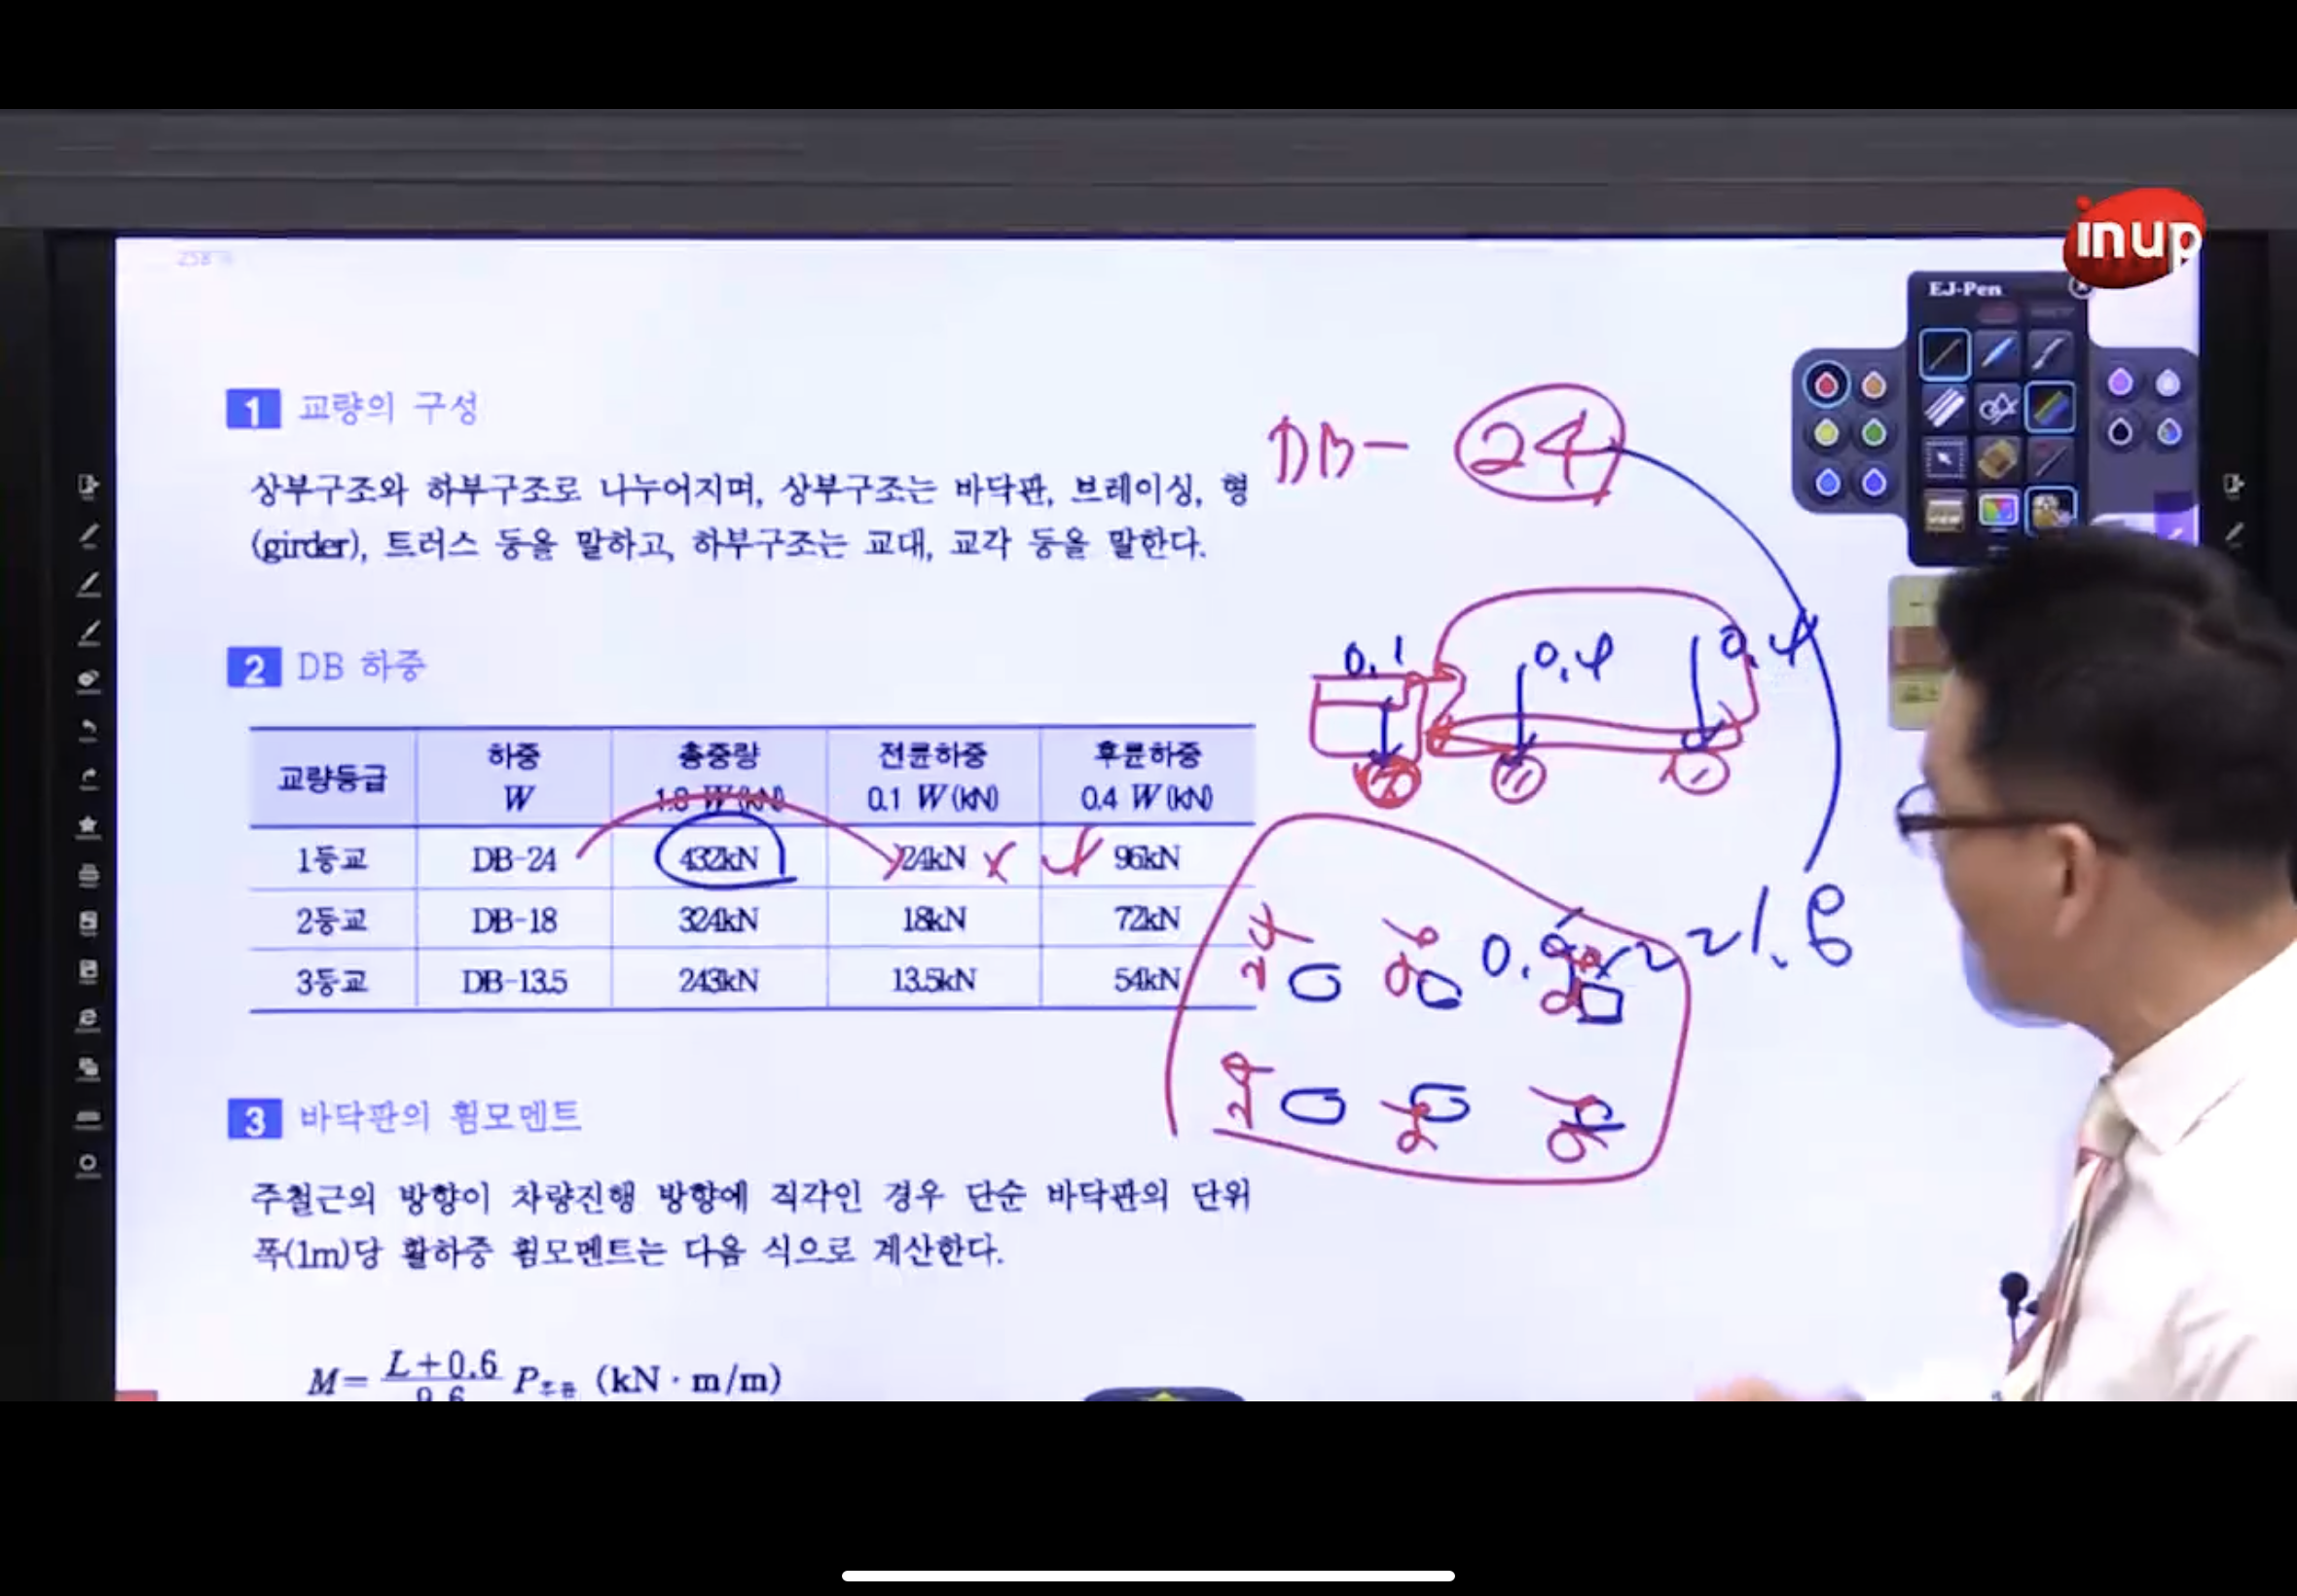 inup
EJ-Pen
1 교량의 구성
상부구조와 하부구조로 나누어지며, 상부구조는 바닥판, 브레이싱, 형
(girder), 트러스 등을 말하고, 하부구조는 교대, 교각 등을 말한다.
DB- 24
2 DB 하중
0.1 0.4 0.4
교량등급 하중 W 총중량 1.8 W(kN) 전륜하중 0.1 W(kN) 후륜하중 0.4 W(kN)
1등교 DB-24 432kN 24kN x 4 96kN
2등교 DB-18 324kN 18kN 72kN
3등교 DB-13.5 243kN 13.5kN 54kN
24 96
24 96 96
3 바닥판의 휨모멘트
주철근의 방향이 차량진행 방향에 직각인 경우 단순 바닥판의 단위
폭(1m)당 활하중 휨모멘트는 다음 식으로 계산한다.
M= L+0.6 / 9.6 P (kN·m/m)